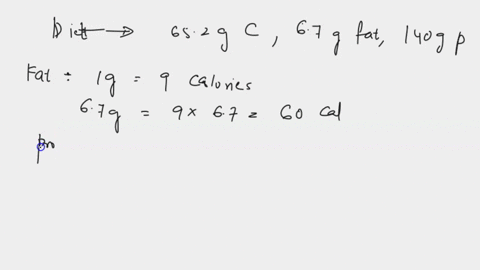 Diet → 65.2g C, 6.7g fat, 140g p
Fat ÷ 1g = 9 calories
6.7g = 9 x 6.7 = 60 cal
pro